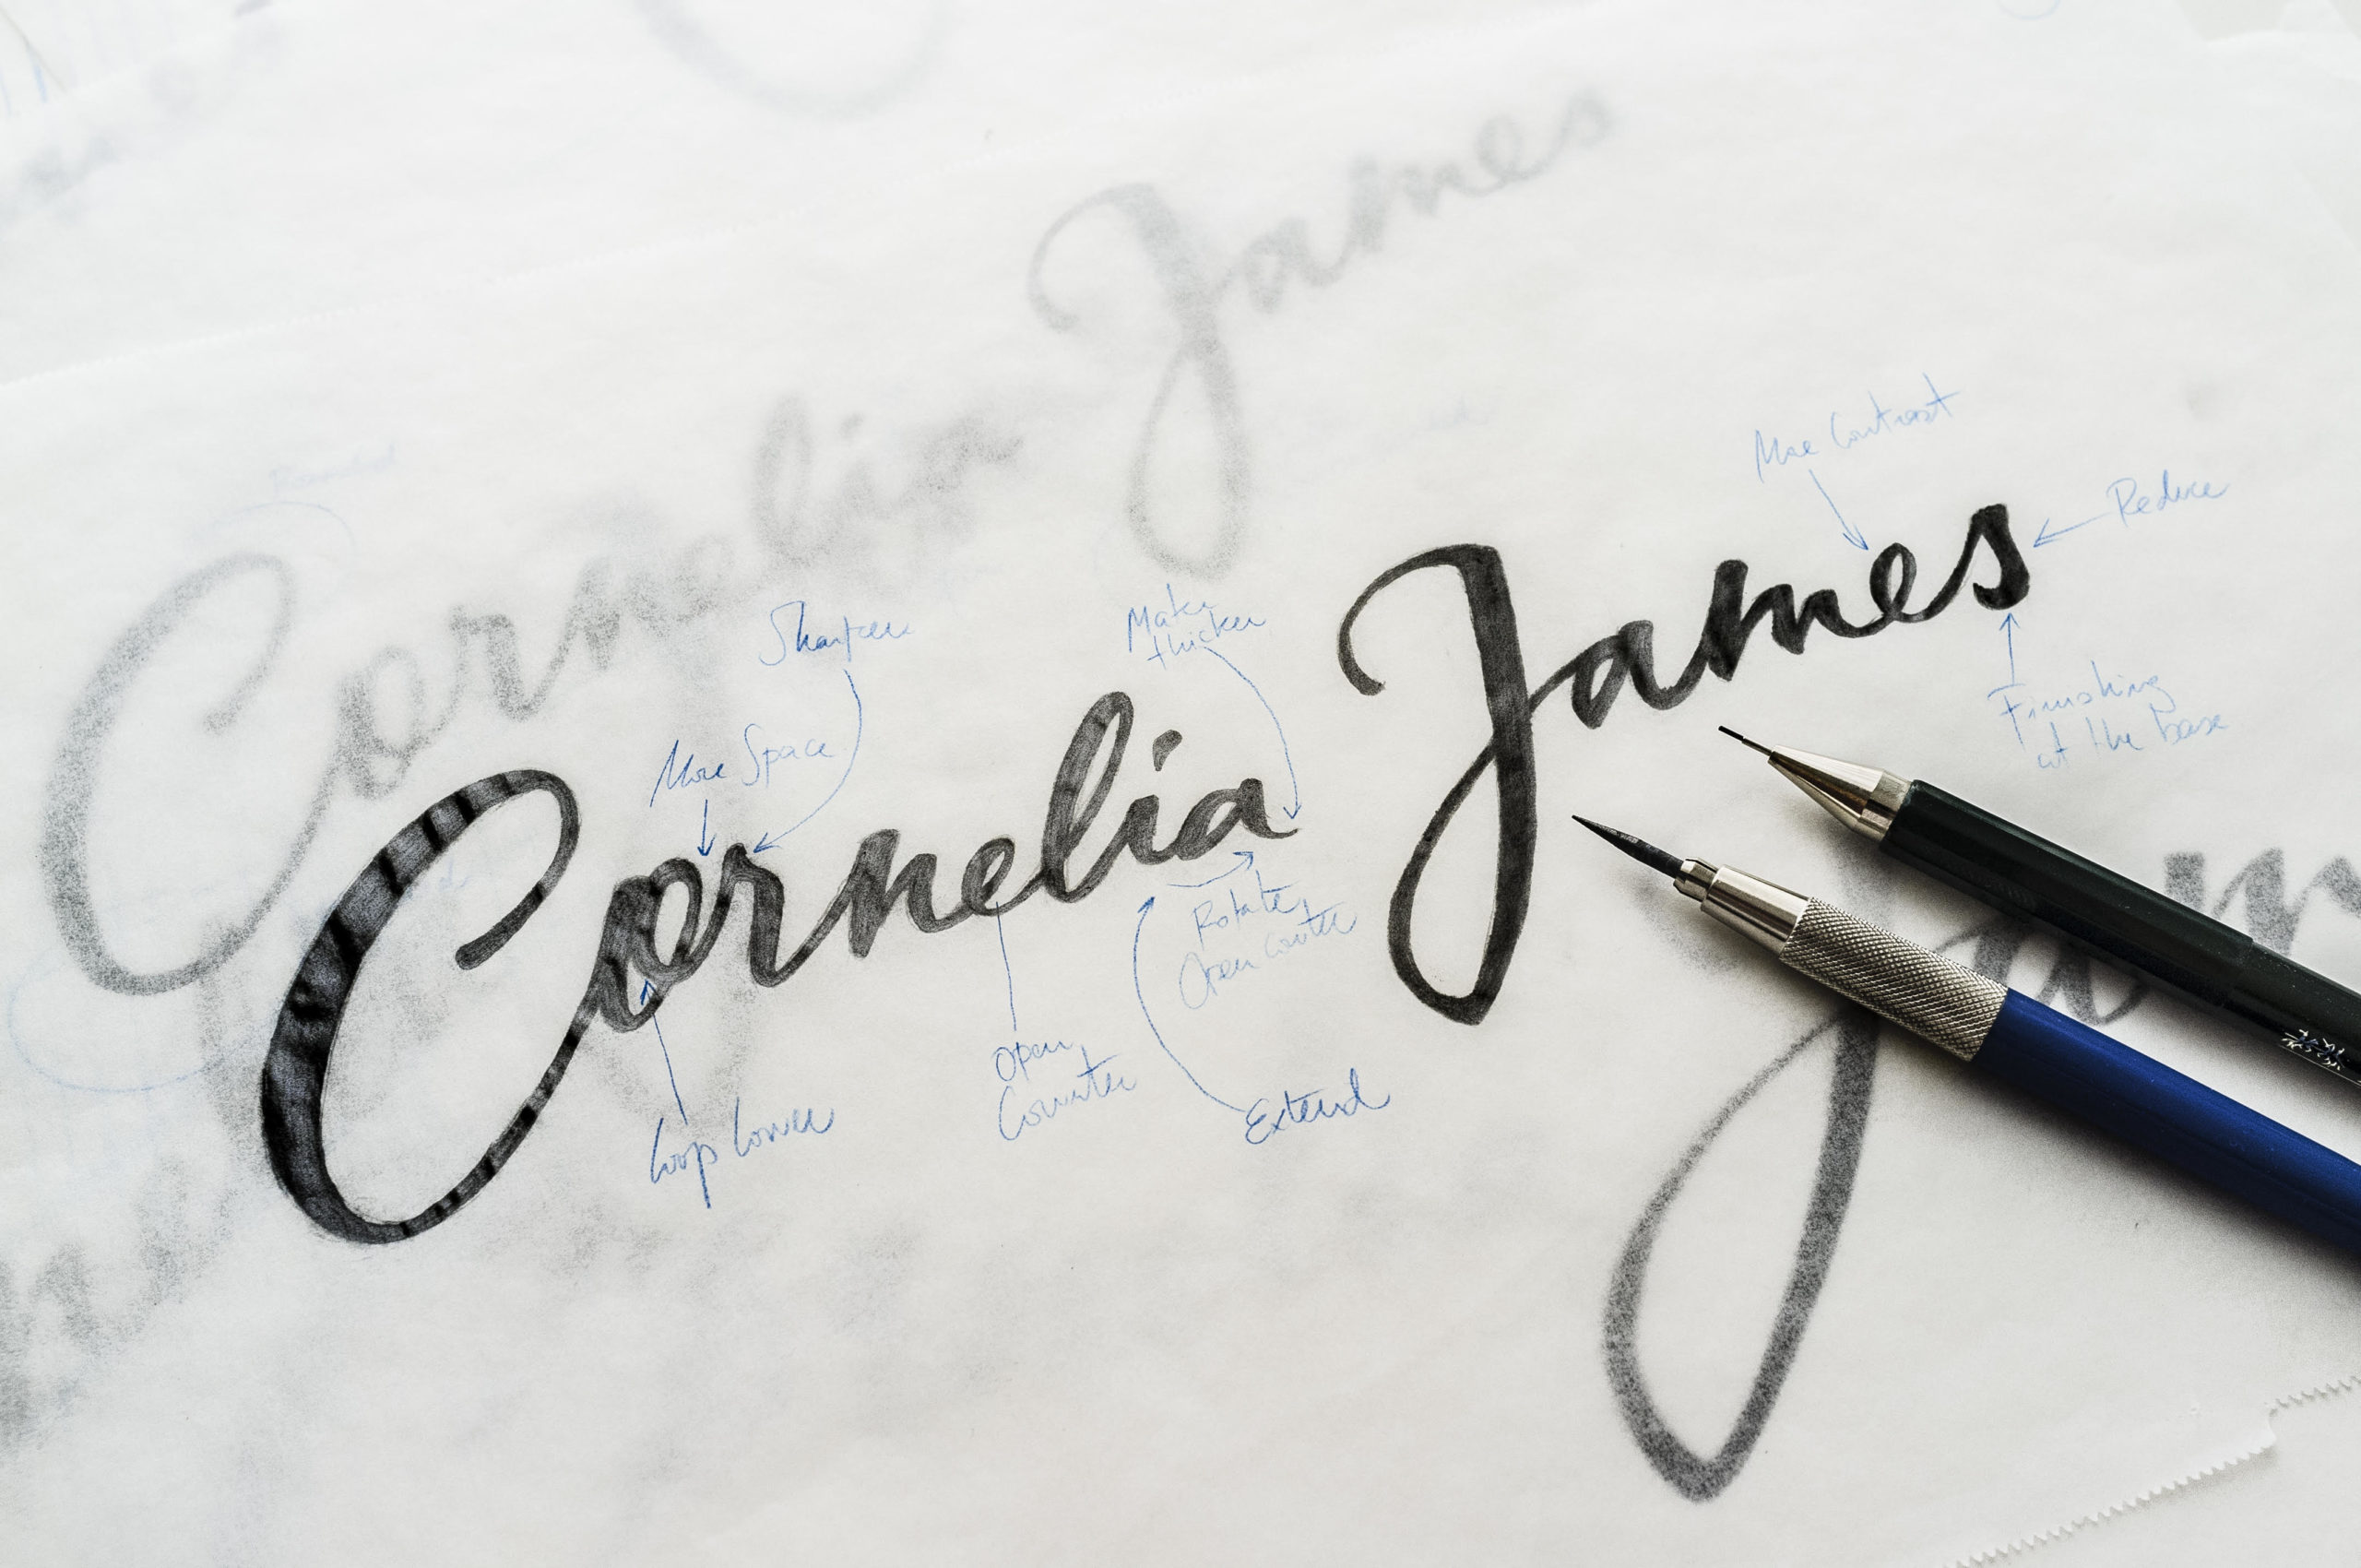 Cornelia James
James
Cornelia
More Contrast
Reduce
Sharper
Make
thicker
More Space
Finishing
at the base
Rotate,
Open Counter
Open
Counter
Extend
Loop Lower